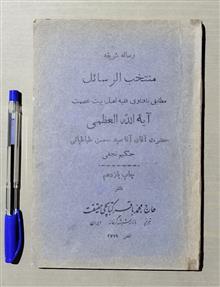 رساله شریفه
منتخب الرسائل
مطابق با فتاوی فقیه اهل بیت عصمت
آیة الله العظمی
حضرت آقای آقا سید محسن طباطبائی
حکیم نجفی
چاپ یازدهم
ناشر
حاج محمد باقر کتابچی حقیقت
ایران
تلفن ۲۷۷۹